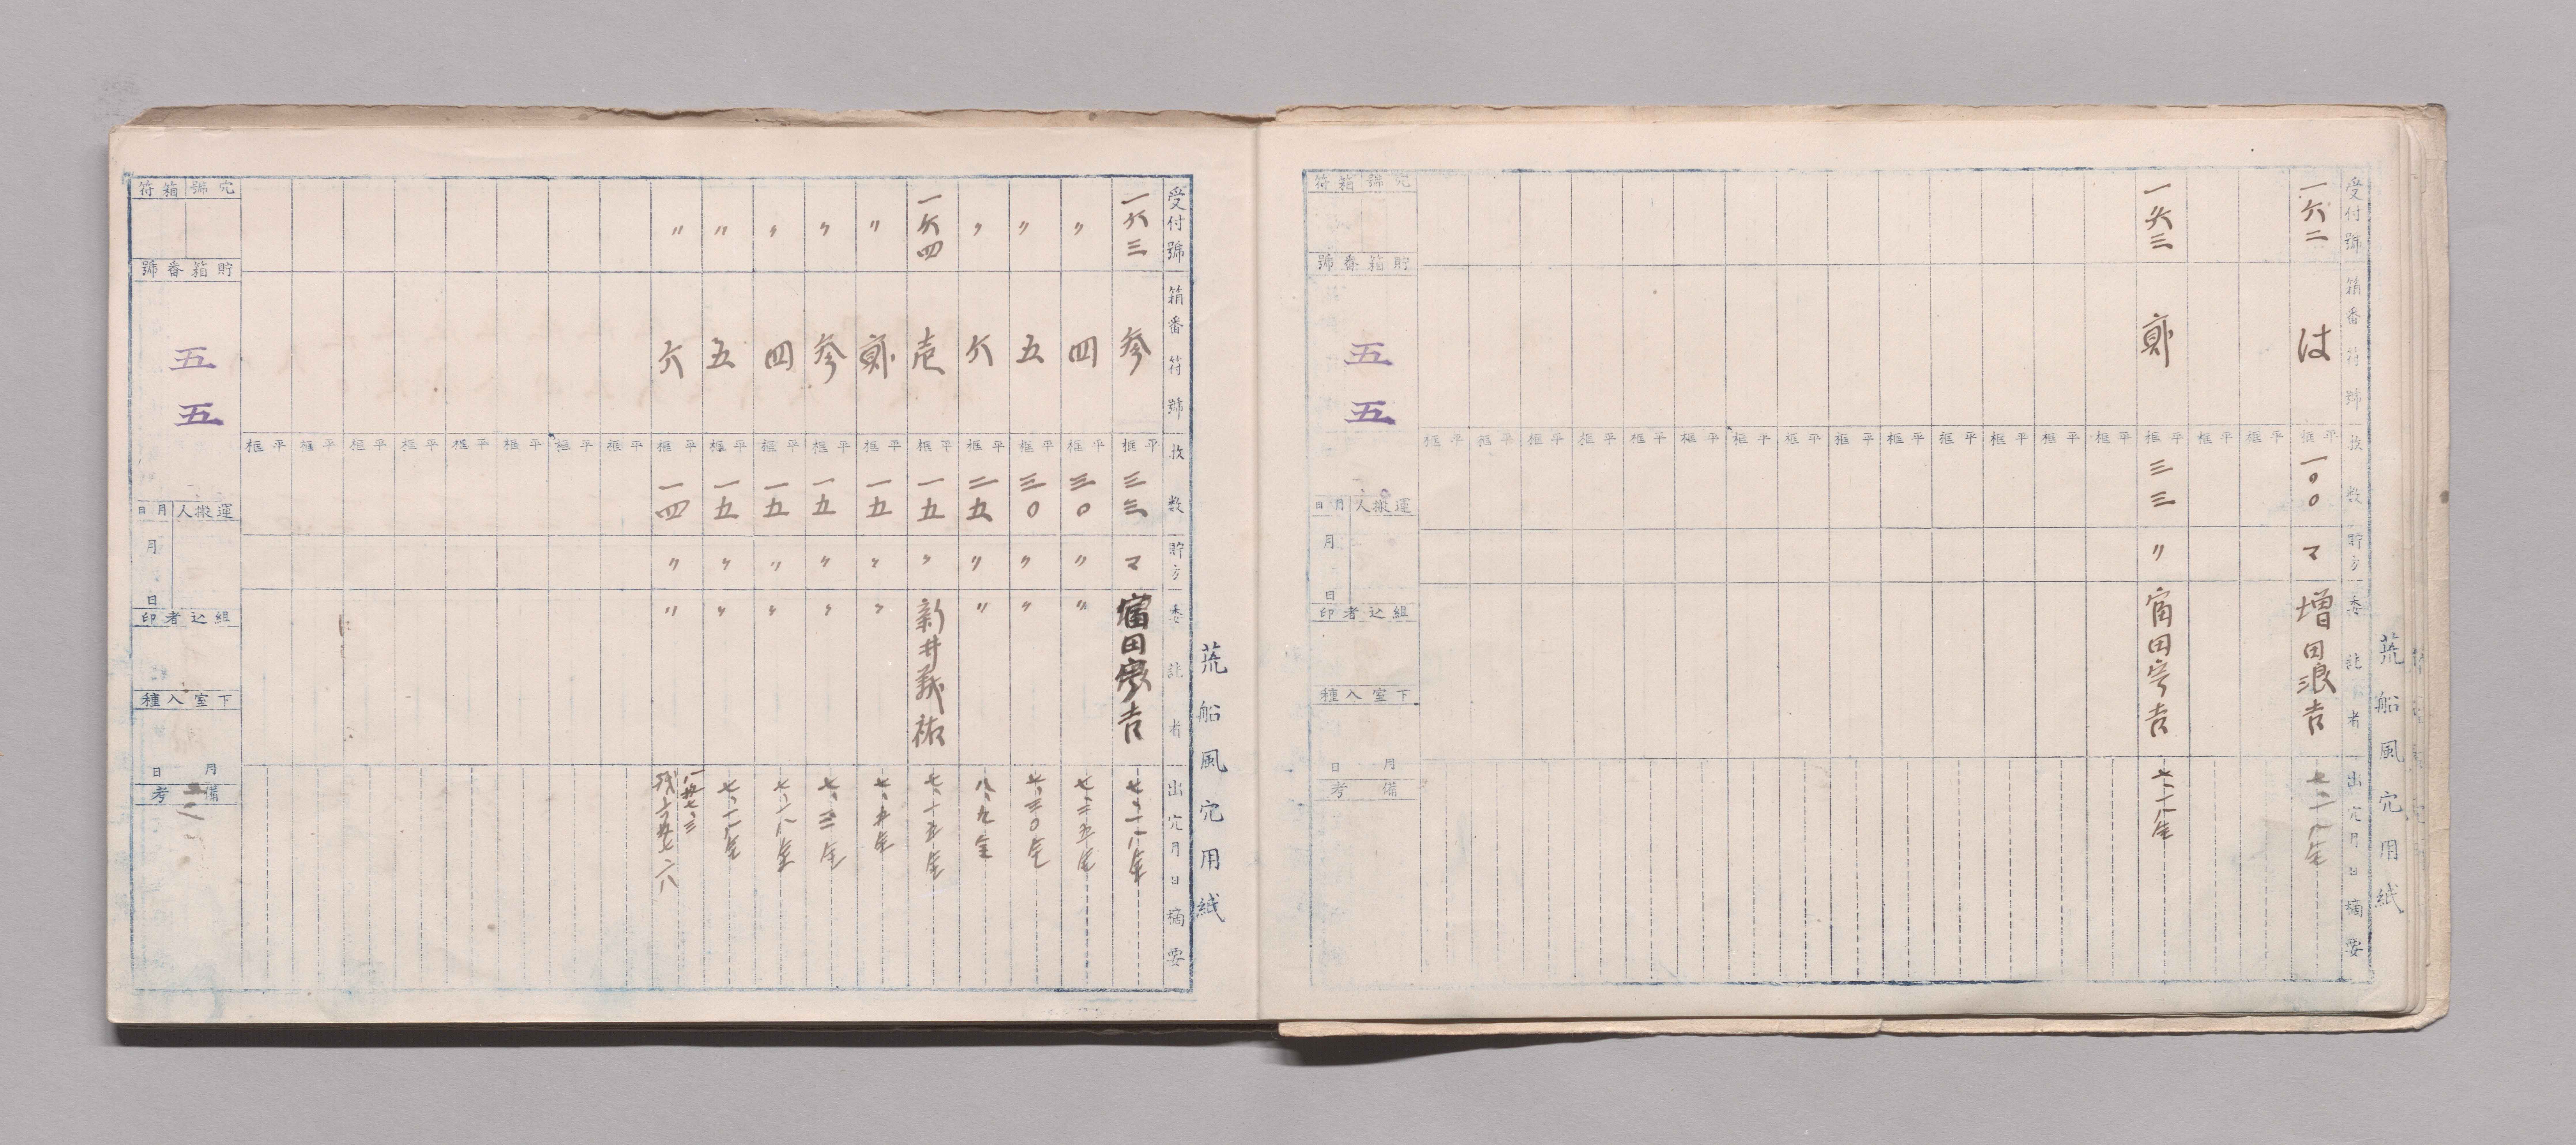 荒船風穴用紙
受付號 箱番符號 枚数 貯方 委託者 出穴月日 摘要
一六二 は 平框 一〇〇 マ 増田浪吉
平框
平框
一六三 貳 平框 三三 〃 富田宗吉 七、一八全
平框
平框
平框
平框
平框
平框
平框
平框
平框
平框
平框
平框
平框
平框
穴號箱符
貯箱番號
五五
運搬人 月日
月 日
組込者印
下室入種
月 日
備考
荒船風穴用紙
受付號 箱番符號 枚数 貯方 委託者 出穴月日 摘要
一六三 参 平框 三三 マ 富田宗吉 七、一八全
〃 四 平框 三〇 〃 〃 七、二五全
〃 五 平框 三〇 〃 〃 七、三〇全
〃 六 平框 二五 〃 〃 八、九全
一六四 壱 平框 一五 〃 新井義祐 七、十五全
〃 貳 平框 一五 〃 〃
〃 参 平框 一五 〃 〃
〃 四 平框 一五 〃 〃 七、一八全
〃 五 平框 一五 〃 〃
〃 六 平框 一四 〃 〃
平框
平框
平框
平框
平框
平框
平框
平框
穴號箱符
貯箱番號
五五
運搬人 月日
月 日
組込者印
下室入種
月 日
備考